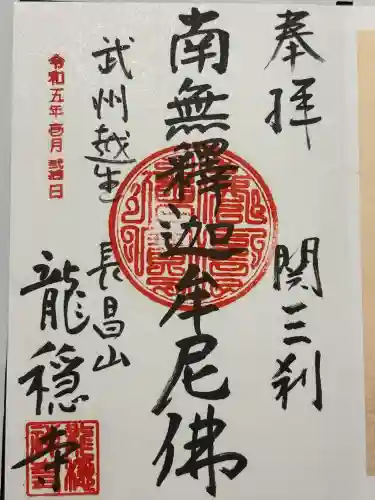 奉拝
関三刹
南無釋迦牟尼佛
武州越生
長昌山
龍穏寺
令和五年壱月弐拾日